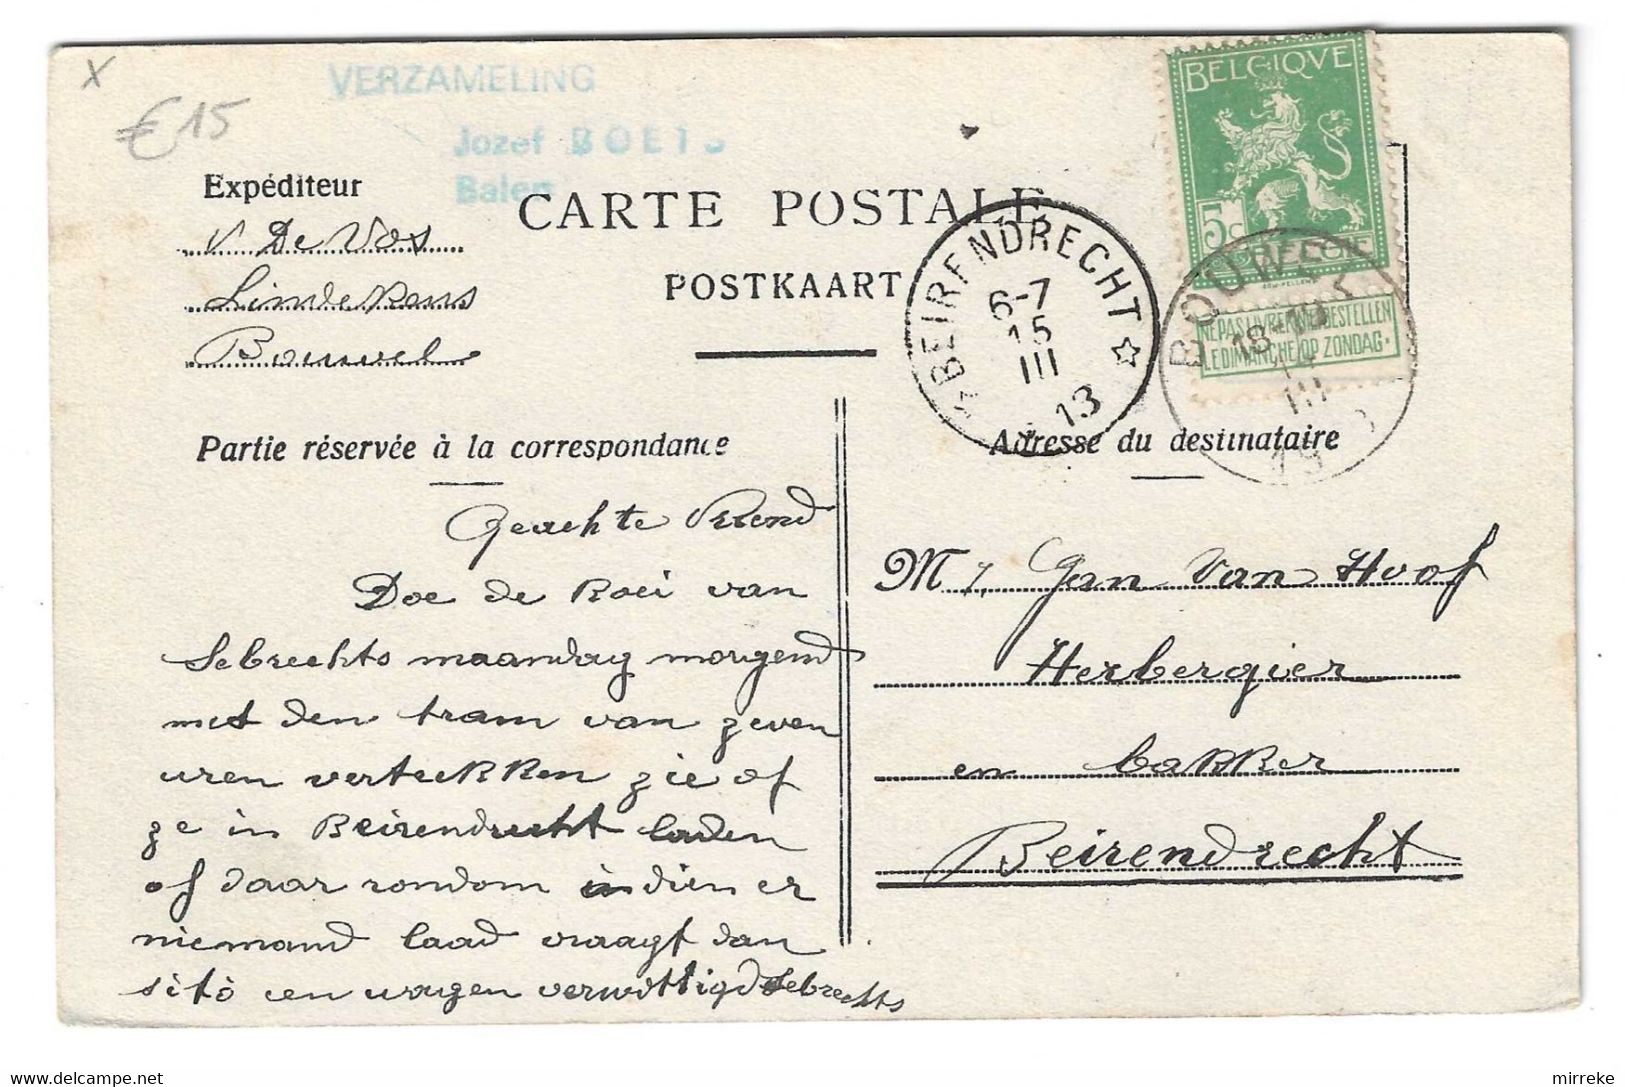 x
€15
VERZAMELING
Jozef BOETS
Balen
Expéditeur
V De Vos
Lindekens
Bouwel
CARTE POSTALE
POSTKAART
BELGIQUE
5c
BELGIË
NE PAS LIVRER NIET BESTELLEN
LE DIMANCHE OP ZONDAG.
BEIRENDRECHT
6-7
15
III
13
BOUWEL
18-19
III
Partie réservée à la correspondance
Adresse du destinataire
Geachte Vriend
Doe de Koei van
Sebrechts maandag morgend
met den tram van zeven
uren vertrekken zie of
ze in Beirendrecht laden
of daar rondom indien er
niemand laad vraagt dan
sito een wagen verwittigd Sebrechts
Mr. Jan Van Hoof
Herbergier
en bakker
Beirendrecht
mirreke